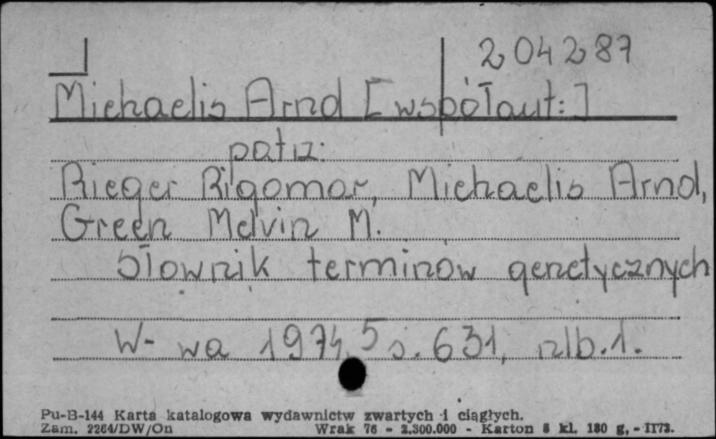 204287
Michaelis Arnd [współaut:]
patrz:
Rieger Rigomar, Michaelis Arnd,
Green Melvin M.
Słownik terminów genetycznych
W-wa 1974, 5 s. 631, nlb. 1.
Pu-B-144 Karta katalogowa wydawnictw zwartych i ciągłych.
Zam. 2264/DW/On Wrak 76 - 2.300.000 - Karton 8 kl. 180 g, - II73.